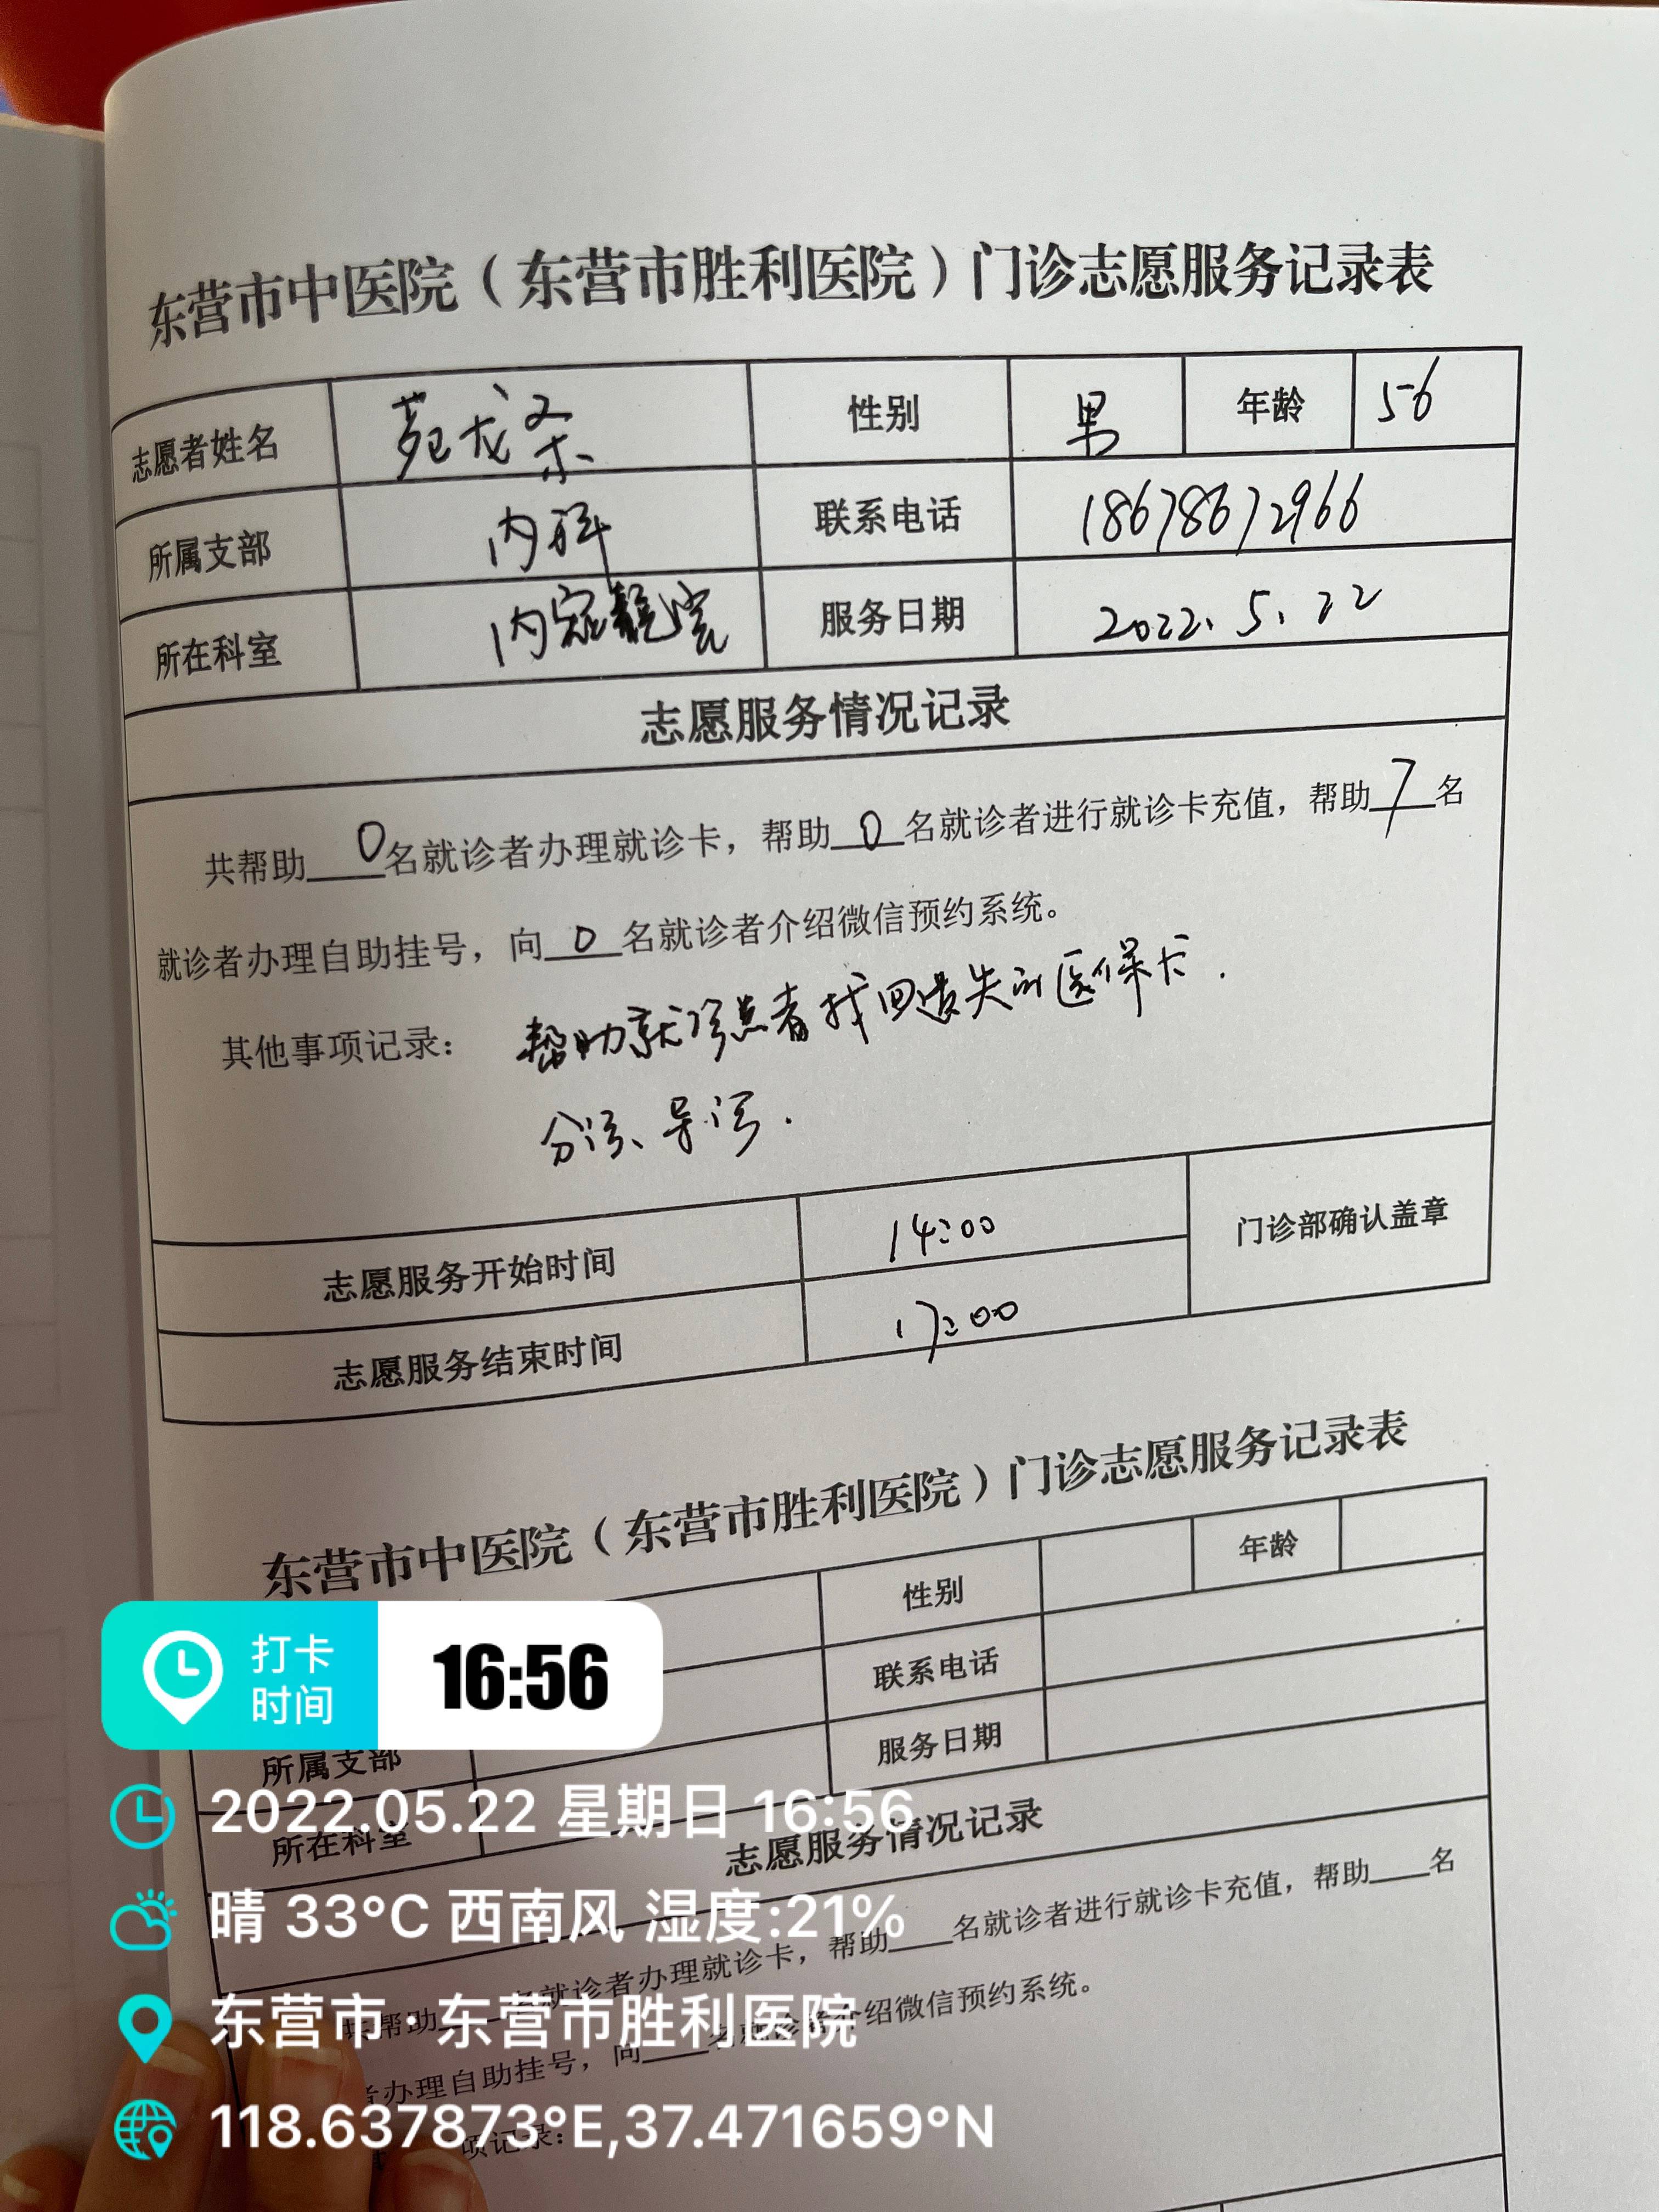 东营市中医院（东营市胜利医院）门诊志愿服务记录表
志愿者姓名 苑龙 性别 男 年龄 56
所属支部 内科 联系电话 18678672966
所在科室 内 服务日期 2022.5.22
志愿服务情况记录
共帮助 0 名就诊者办理就诊卡，帮助 0 名就诊者进行就诊卡充值，帮助 7 名
就诊者办理自助挂号，向 0 名就诊者介绍微信预约系统。
其他事项记录： 帮助就诊患者找回遗失的医保卡.
分诊、导诊.
志愿服务开始时间 14:00 门诊部确认盖章
志愿服务结束时间 17:00
东营市中医院（东营市胜利医院）门诊志愿服务记录表
性别 年龄
联系电话
所属支部 服务日期
所在科室
志愿服务情况记录
共帮助____名就诊者办理就诊卡，帮助____名就诊者进行就诊卡充值，帮助____名
者办理自助挂号，向____名就诊者介绍微信预约系统。
项记录：
打卡
时间
16:56
2022.05.22 星期日 16:56
晴 33°C 西南风 湿度:21%
东营市·东营市胜利医院
118.637873°E,37.471659°N